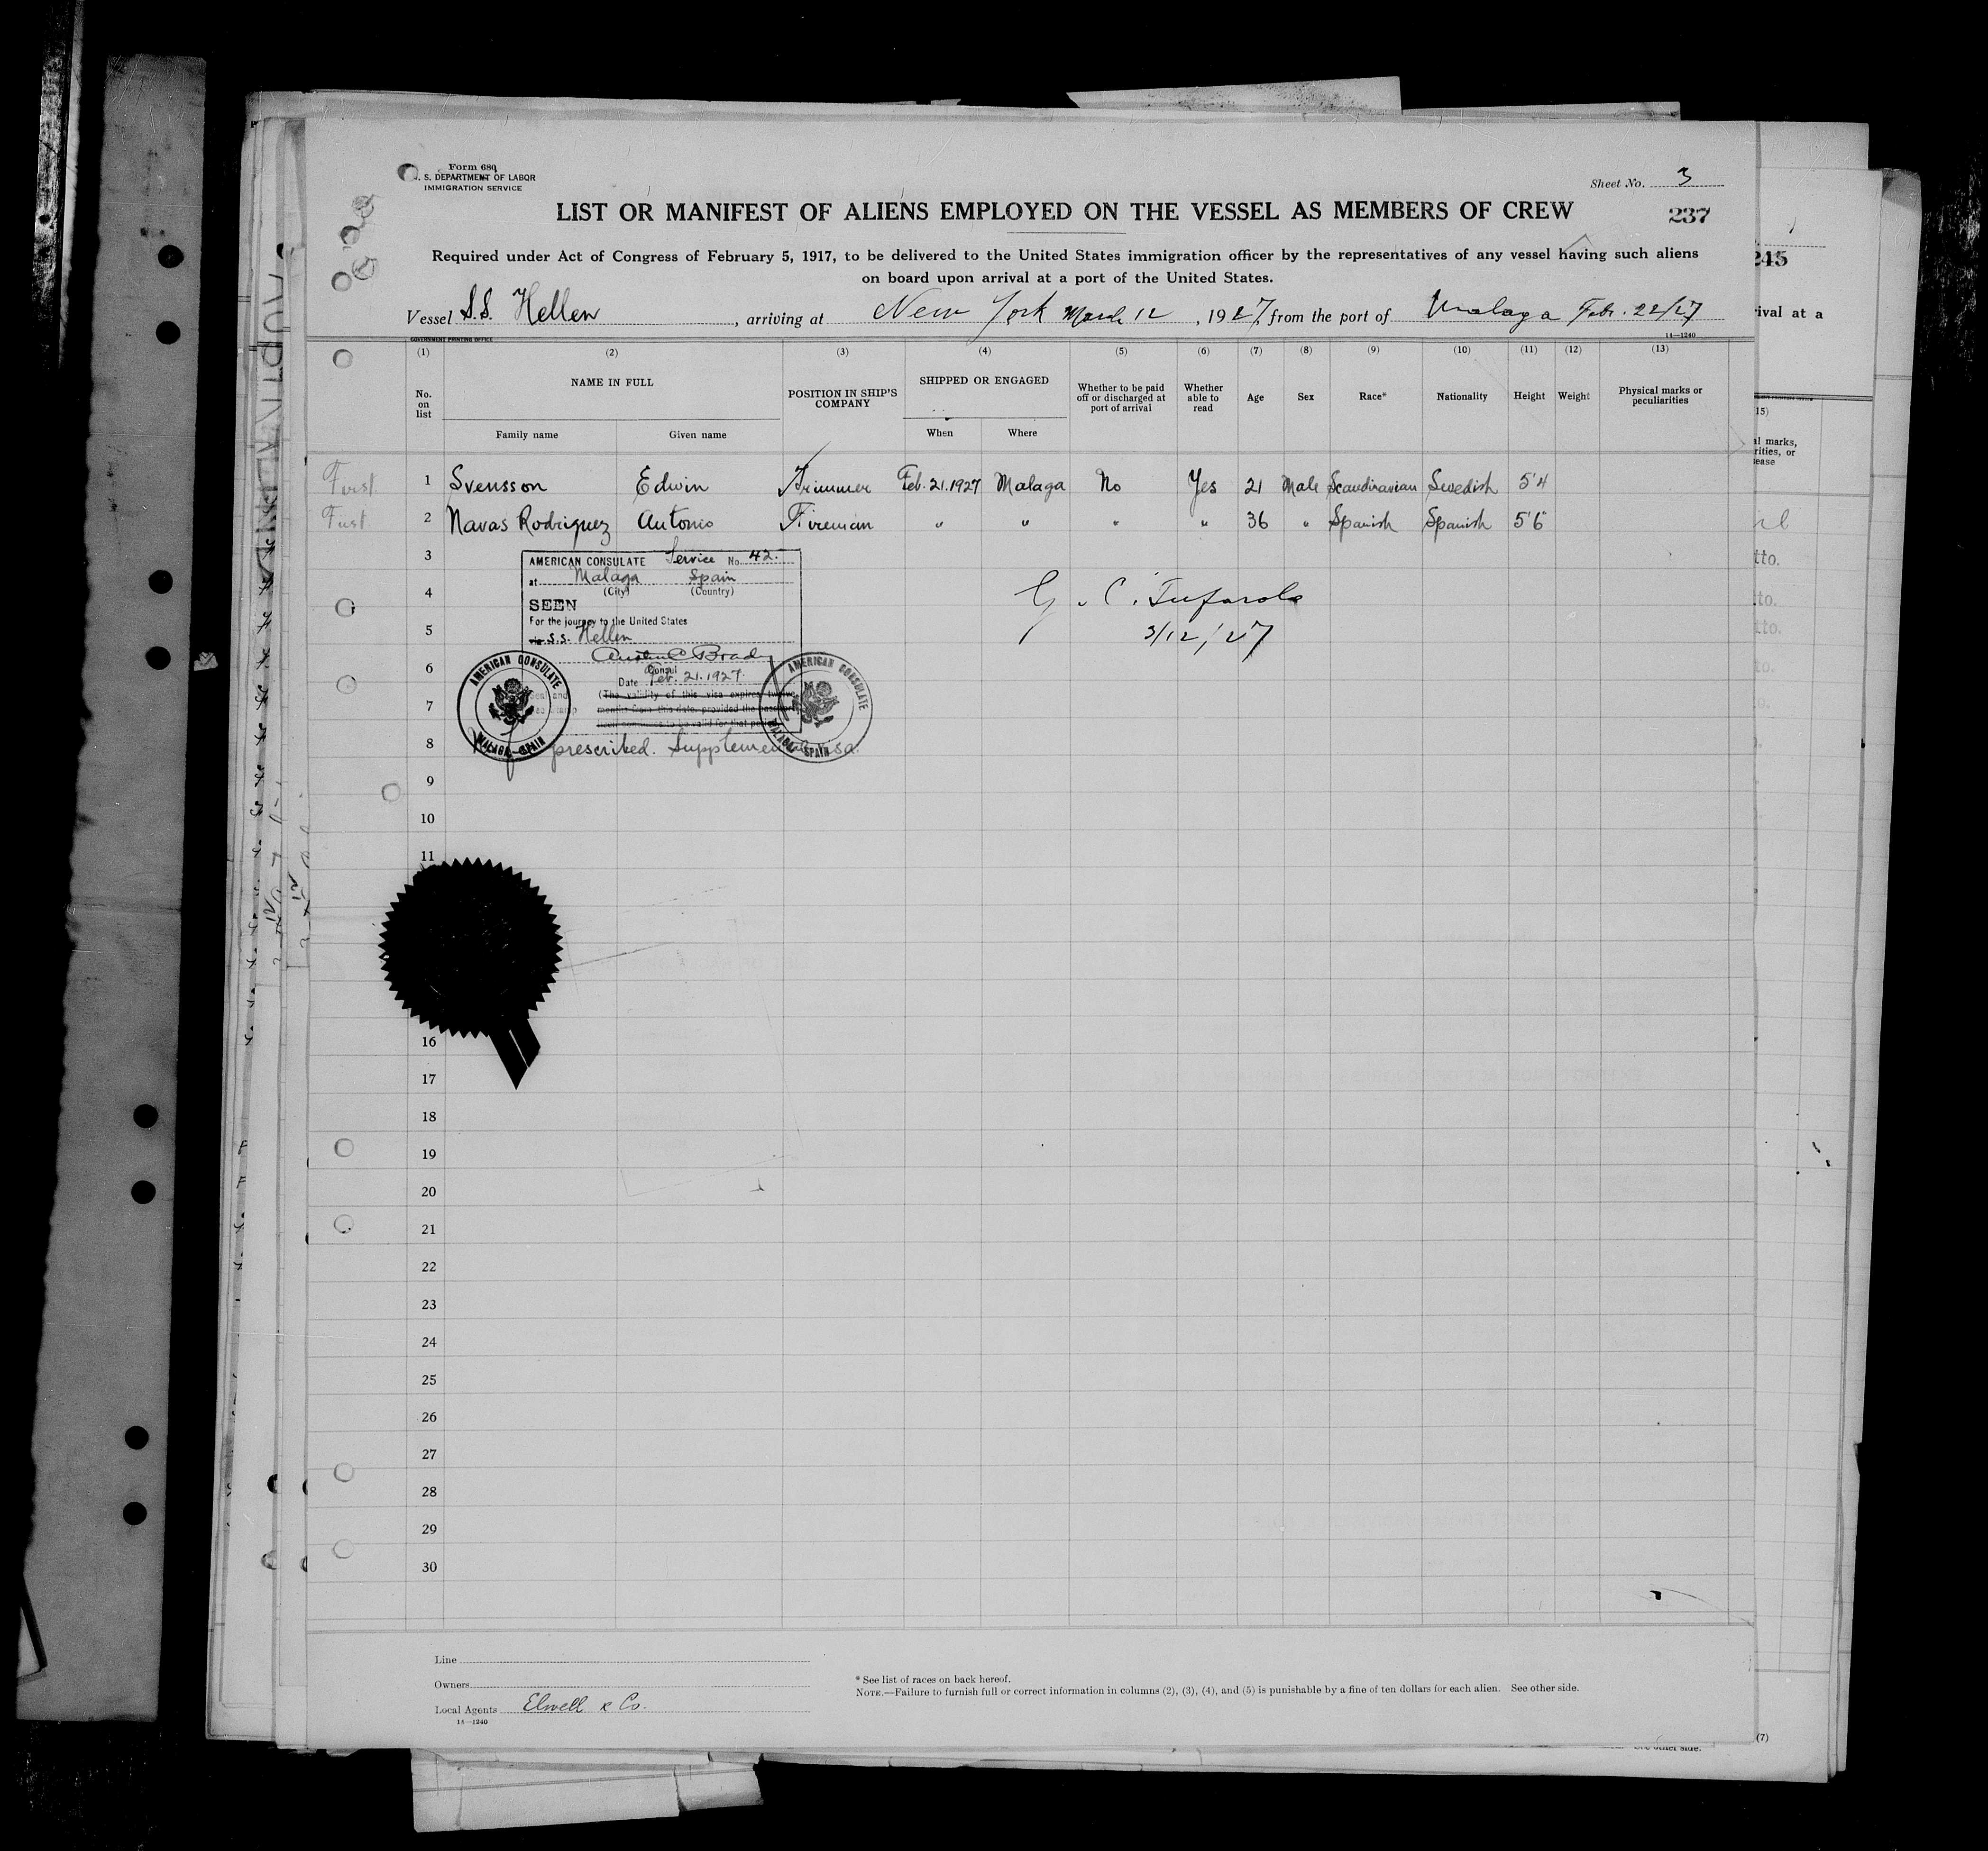 Form 680
U. S. DEPARTMENT OF LABOR
IMMIGRATION SERVICE
Sheet No. 3
LIST OR MANIFEST OF ALIENS EMPLOYED ON THE VESSEL AS MEMBERS OF CREW
237
Required under Act of Congress of February 5, 1917, to be delivered to the United States immigration officer by the representatives of any vessel having such aliens
on board upon arrival at a port of the United States.
Vessel S.S. Hellen, arriving at New York March 12, 1927, from the port of Malaga Febr. 22/27
GOVERNMENT PRINTING OFFICE
14—1240
(1) (2) (3) (4) (5) (6) (7) (8) (9) (10) (11) (12) (13)
No. on list
NAME IN FULL
Family name
Given name
POSITION IN SHIP'S COMPANY
SHIPPED OR ENGAGED
When
Where
Whether to be paid off or discharged at port of arrival
Whether able to read
Age
Sex
Race*
Nationality
Height
Weight
Physical marks or peculiarities
First 1 Svensson Edwin Trimmer Feb. 21.1927 Malaga No Yes 21 Male Scandinavian Swedish 5'4
First 2 Navas Rodriguez Antonio Fireman " " " " 36 " Spanish Spanish 5'6"
3
4
5
6
7
8
9
10
11
16
17
18
19
20
21
22
23
24
25
26
27
28
29
30
AMERICAN CONSULATE Service No. 42.
at Malaga Spain
(City) (Country)
SEEN
For the journey to the United States
via S.S. Hellen
Brady
Consul
Date Feb. 21.1927.
(The validity of this visa expires twelve
months from this date, provided the passport
continues to be valid for that period
prescribed. Supplemental visa.
AMERICAN CONSULATE
MALAGA - SPAIN
AMERICAN CONSULATE
MALAGA - SPAIN
G. C.
3/12/27
Line
Owners
Local Agents Elwell & Co.
14—1240
* See list of races on back hereof.
NOTE.—Failure to furnish full or correct information in columns (2), (3), (4), and (5) is punishable by a fine of ten dollars for each alien. See other side.
245
rival at a
15)
al marks,
rities, or
ease
tto.
tto.
(7)
See other side.